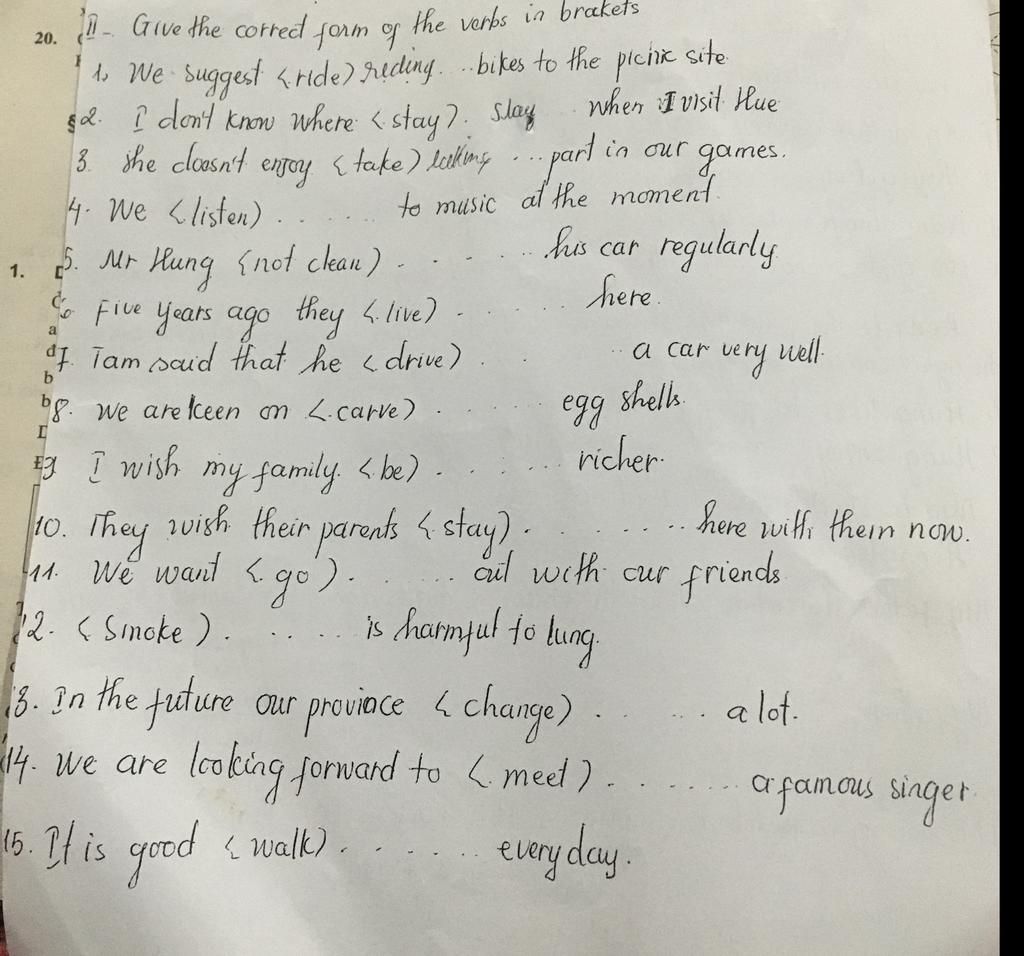 20. II- Give the correct form of the verbs in brakets
1, We suggest (ride) reding...bikes to the picnic site
2. I don't know where (stay). Slay when I visit Hue
3. She doesn't enjoy (take) ...part in our games.
4. We (listen) ...... to music at the moment.
1. 5. Mr Hung (not clean) ...... his car regularly
6 Five years ago they (live) ...... here.
7. Tam said that he (drive) .... a car very well.
8. we are keen on (carve) ...... egg shells.
9 I wish my family (be) ...... richer.
10. They wish their parents (stay) ...... here with them now.
11. We want (go) ...... out with our friends
12. (Smoke) ...... is harmful to lung.
13. In the future our province (change) ..... a lot.
14. we are looking forward to (meet) ...... a famous singer.
15. It is good (walk) ...... every day.